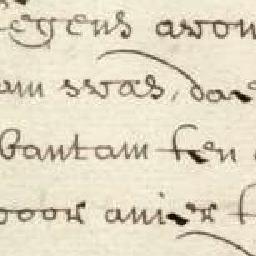 tegens avon
am swas, dae
bantam ten
voor anier